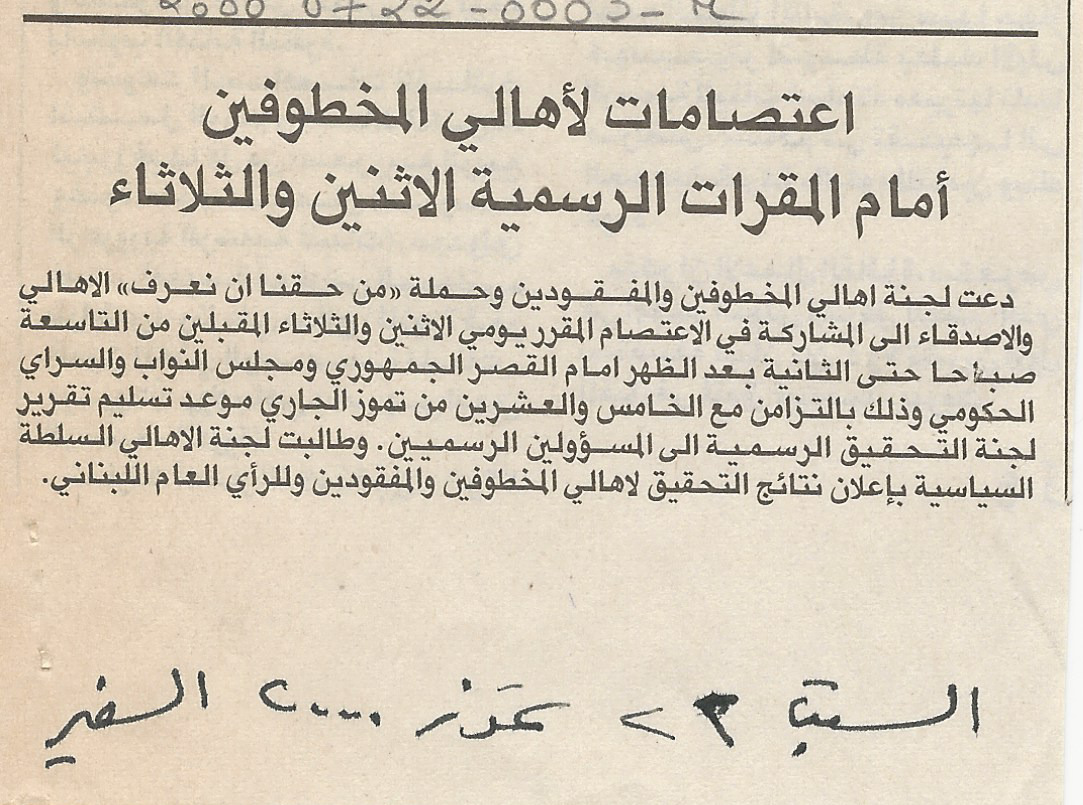 2000 0722-0003-M
اعتصامات لأهالي المخطوفين
أمام المقرات الرسمية الاثنين والثلاثاء
دعت لجنة اهالي المخطوفين والمفقودين وحملة «من حقنا ان نعرف» الاهالي
والاصدقاء الى المشاركة في الاعتصام المقرر يومي الاثنين والثلاثاء المقبلين من التاسعة
صباحا حتى الثانية بعد الظهر امام القصر الجمهوري ومجلس النواب والسراي
الحكومي وذلك بالتزامن مع الخامس والعشرين من تموز الجاري موعد تسليم تقرير
لجنة التحقيق الرسمية الى المسؤولين الرسميين. وطالبت لجنة الاهالي السلطة
السياسية بإعلان نتائج التحقيق لاهالي المخطوفين والمفقودين وللرأي العام اللبناني.
السبت تموز ٢٠٠٠ السفير